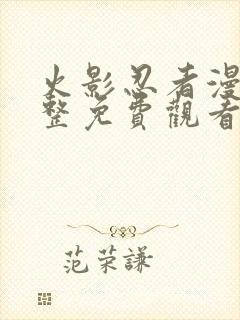 火影忍者漫
整免費觀看
范荣謙